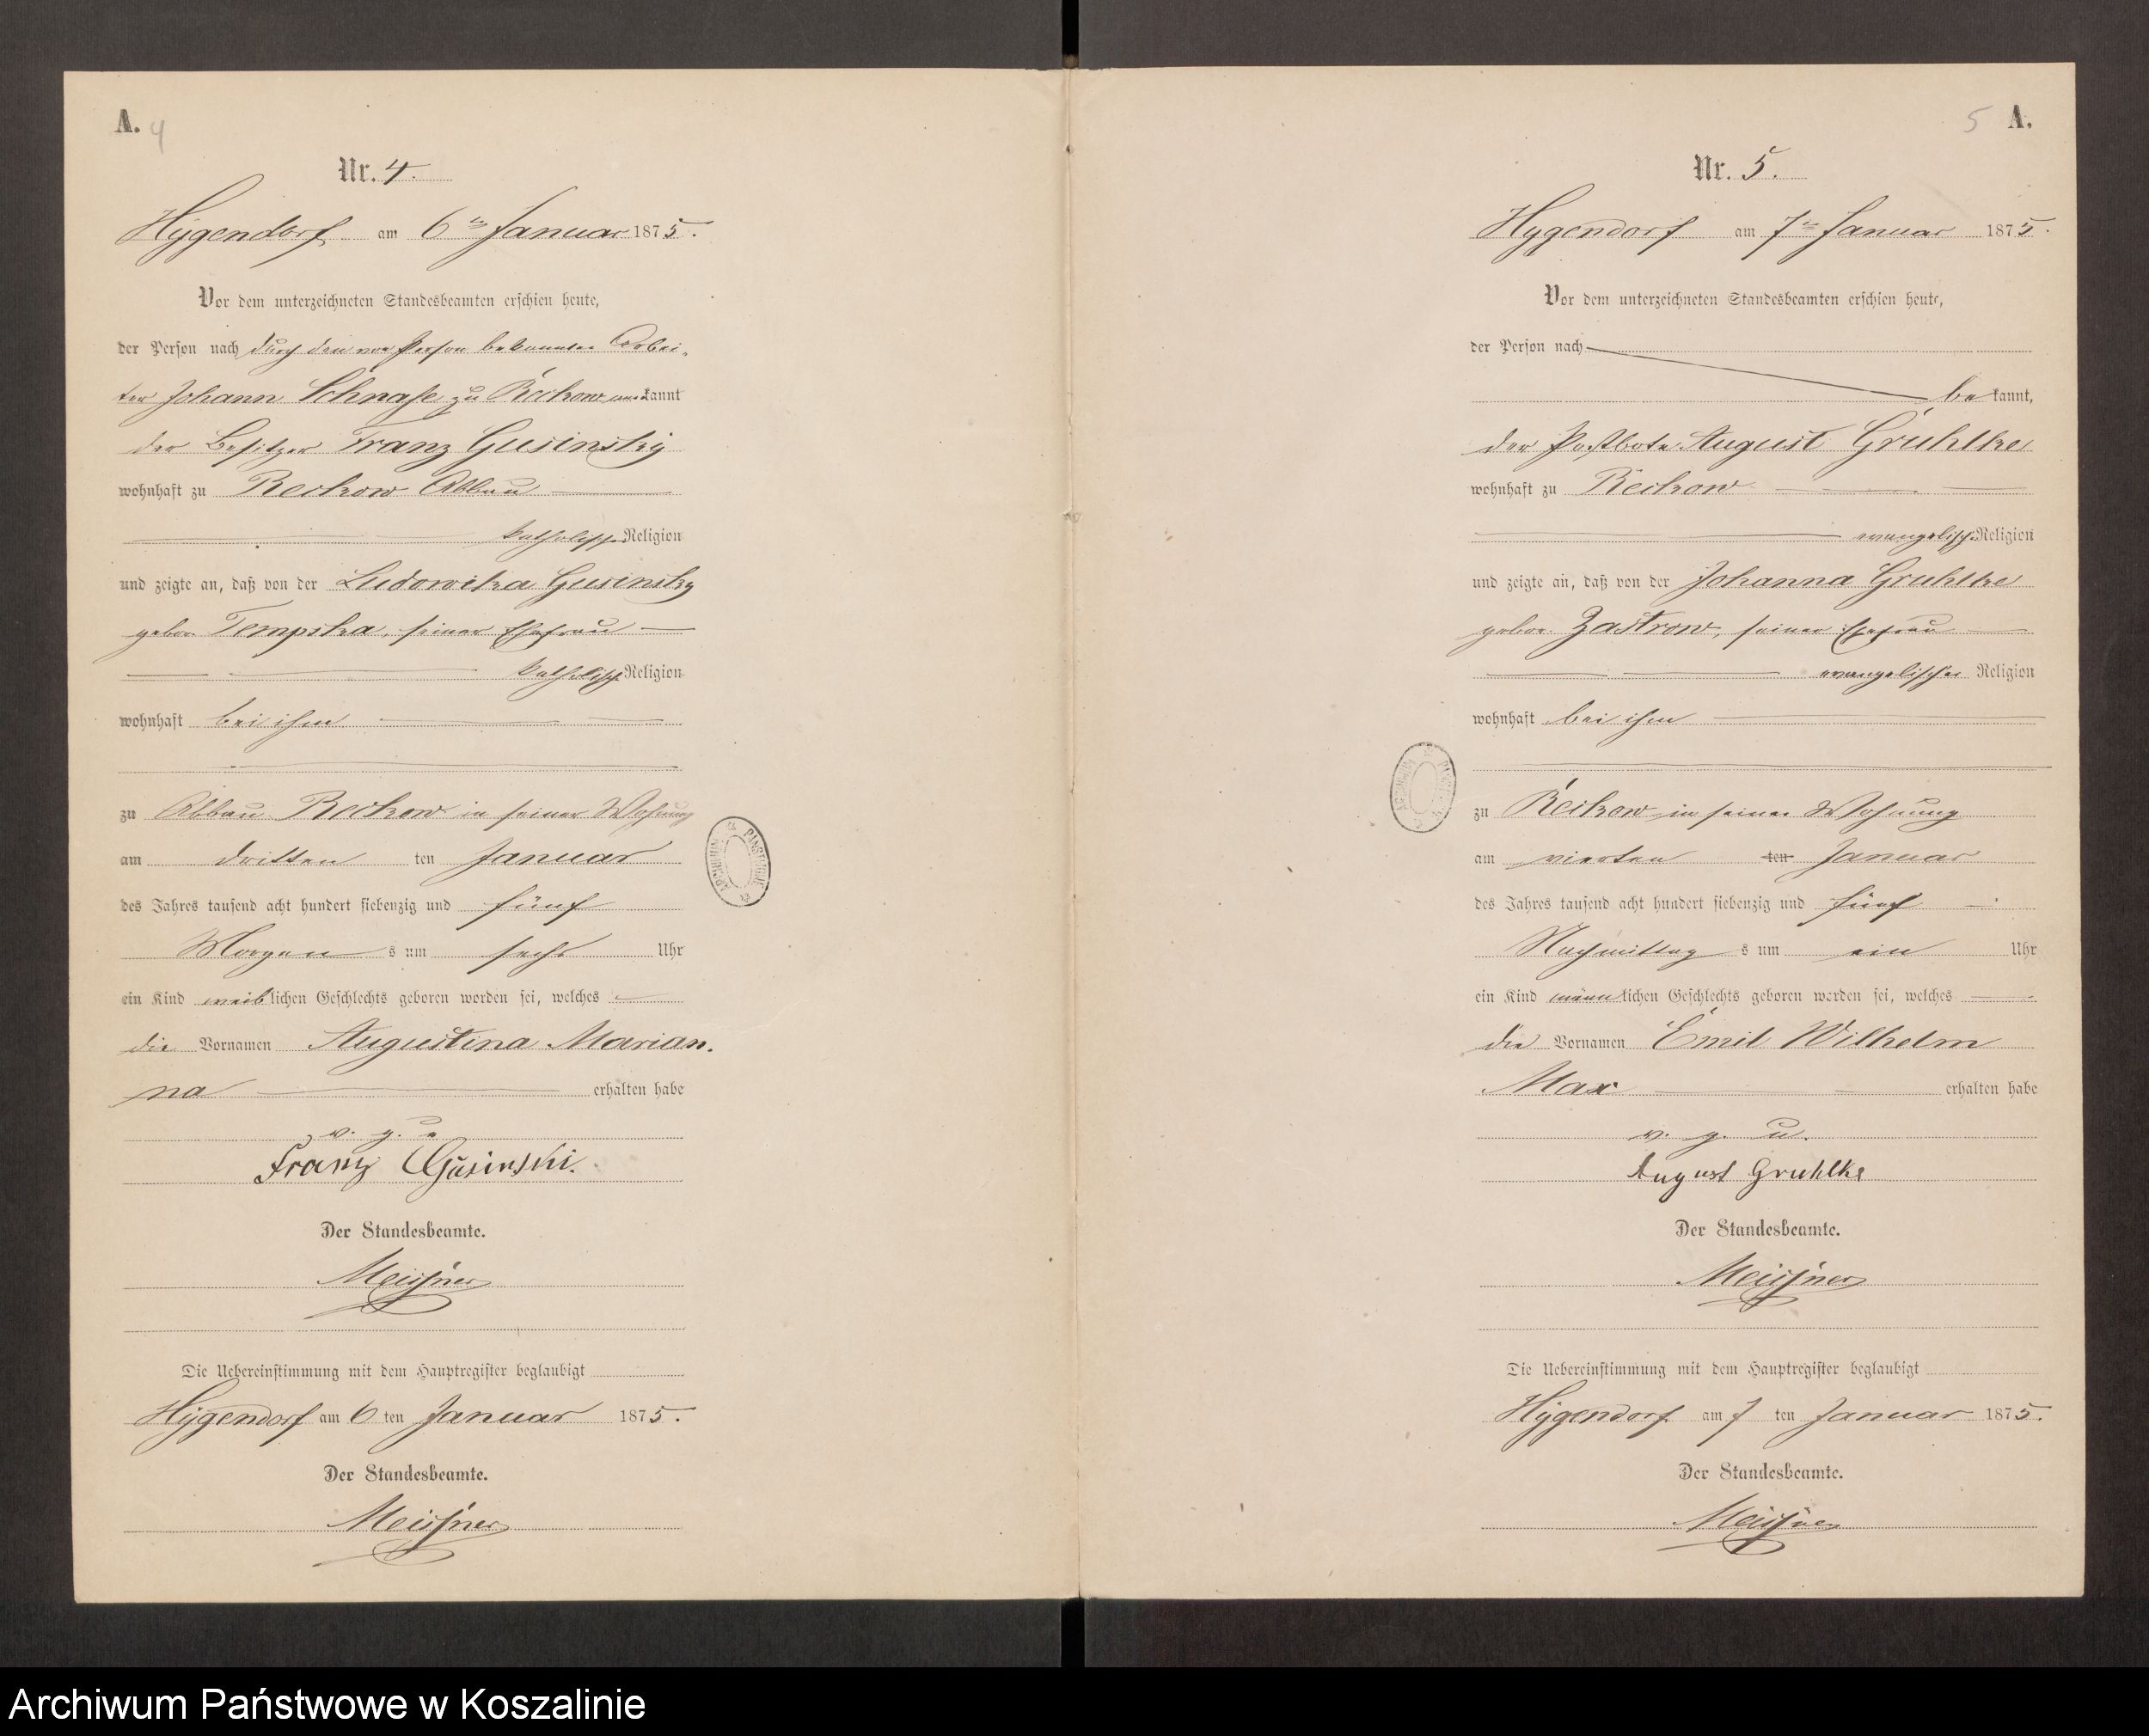 A. 4
Nr. 4.
Hygendorf am 6ten Januar 1875.
Vor dem unterzeichneten Standesbeamten erschien heute,
der Person nach durch den von Person bekannten Arbei-
ter Johann Schnase zu Reckow anerkannt
der Besitzer Franz Gusinsky
wohnhaft zu Reckow Abbau
katholisch Religion
und zeigte an, daß von der Ludowika Gusinsky
gebor. Tempska, seiner Ehefrau
katholisch Religion
wohnhaft bei ihm
zu Abbau Reckow in seiner Wohnung
am dritten ten Januar
des Jahres tausend acht hundert siebenzig und fünf
Morgens um sechs Uhr
ein Kind weiblichen Geschlechts geboren worden sei, welches
die Vornamen Augustina Marian-
na erhalten habe
v. g. u.
Franz Gusinski.
Der Standesbeamte.
Meissner
Die Uebereinstimmung mit dem Hauptregister beglaubigt
Hygendorf am 6 ten Januar 1875.
Der Standesbeamte.
Meissner
5 A.
Nr. 5.
Hygendorf am 7ten Januar 1875.
Vor dem unterzeichneten Standesbeamten erschien heute,
der Person nach
bekannt,
der Postbote August Gruhlke
wohnhaft zu Reckow
evangelisch Religion
und zeigte an, daß von der Johanna Gruhlke
gebor. Zastrow, seiner Ehefrau
evangelischer Religion
wohnhaft bei ihm
zu Reckow in seiner Wohnung
am vierten ten Januar
des Jahres tausend acht hundert siebenzig und fünf
Nachmittags um ein Uhr
ein Kind männlichen Geschlechts geboren worden sei, welches
die Vornamen Emil Wilhelm
Max erhalten habe
v. g. u.
August Gruhlke
Der Standesbeamte.
Meissner
Die Uebereinstimmung mit dem Hauptregister beglaubigt
Hygendorf am 7 ten Januar 1875.
Der Standesbeamte.
Meissner
Archiwum Państwowe w Koszalinie